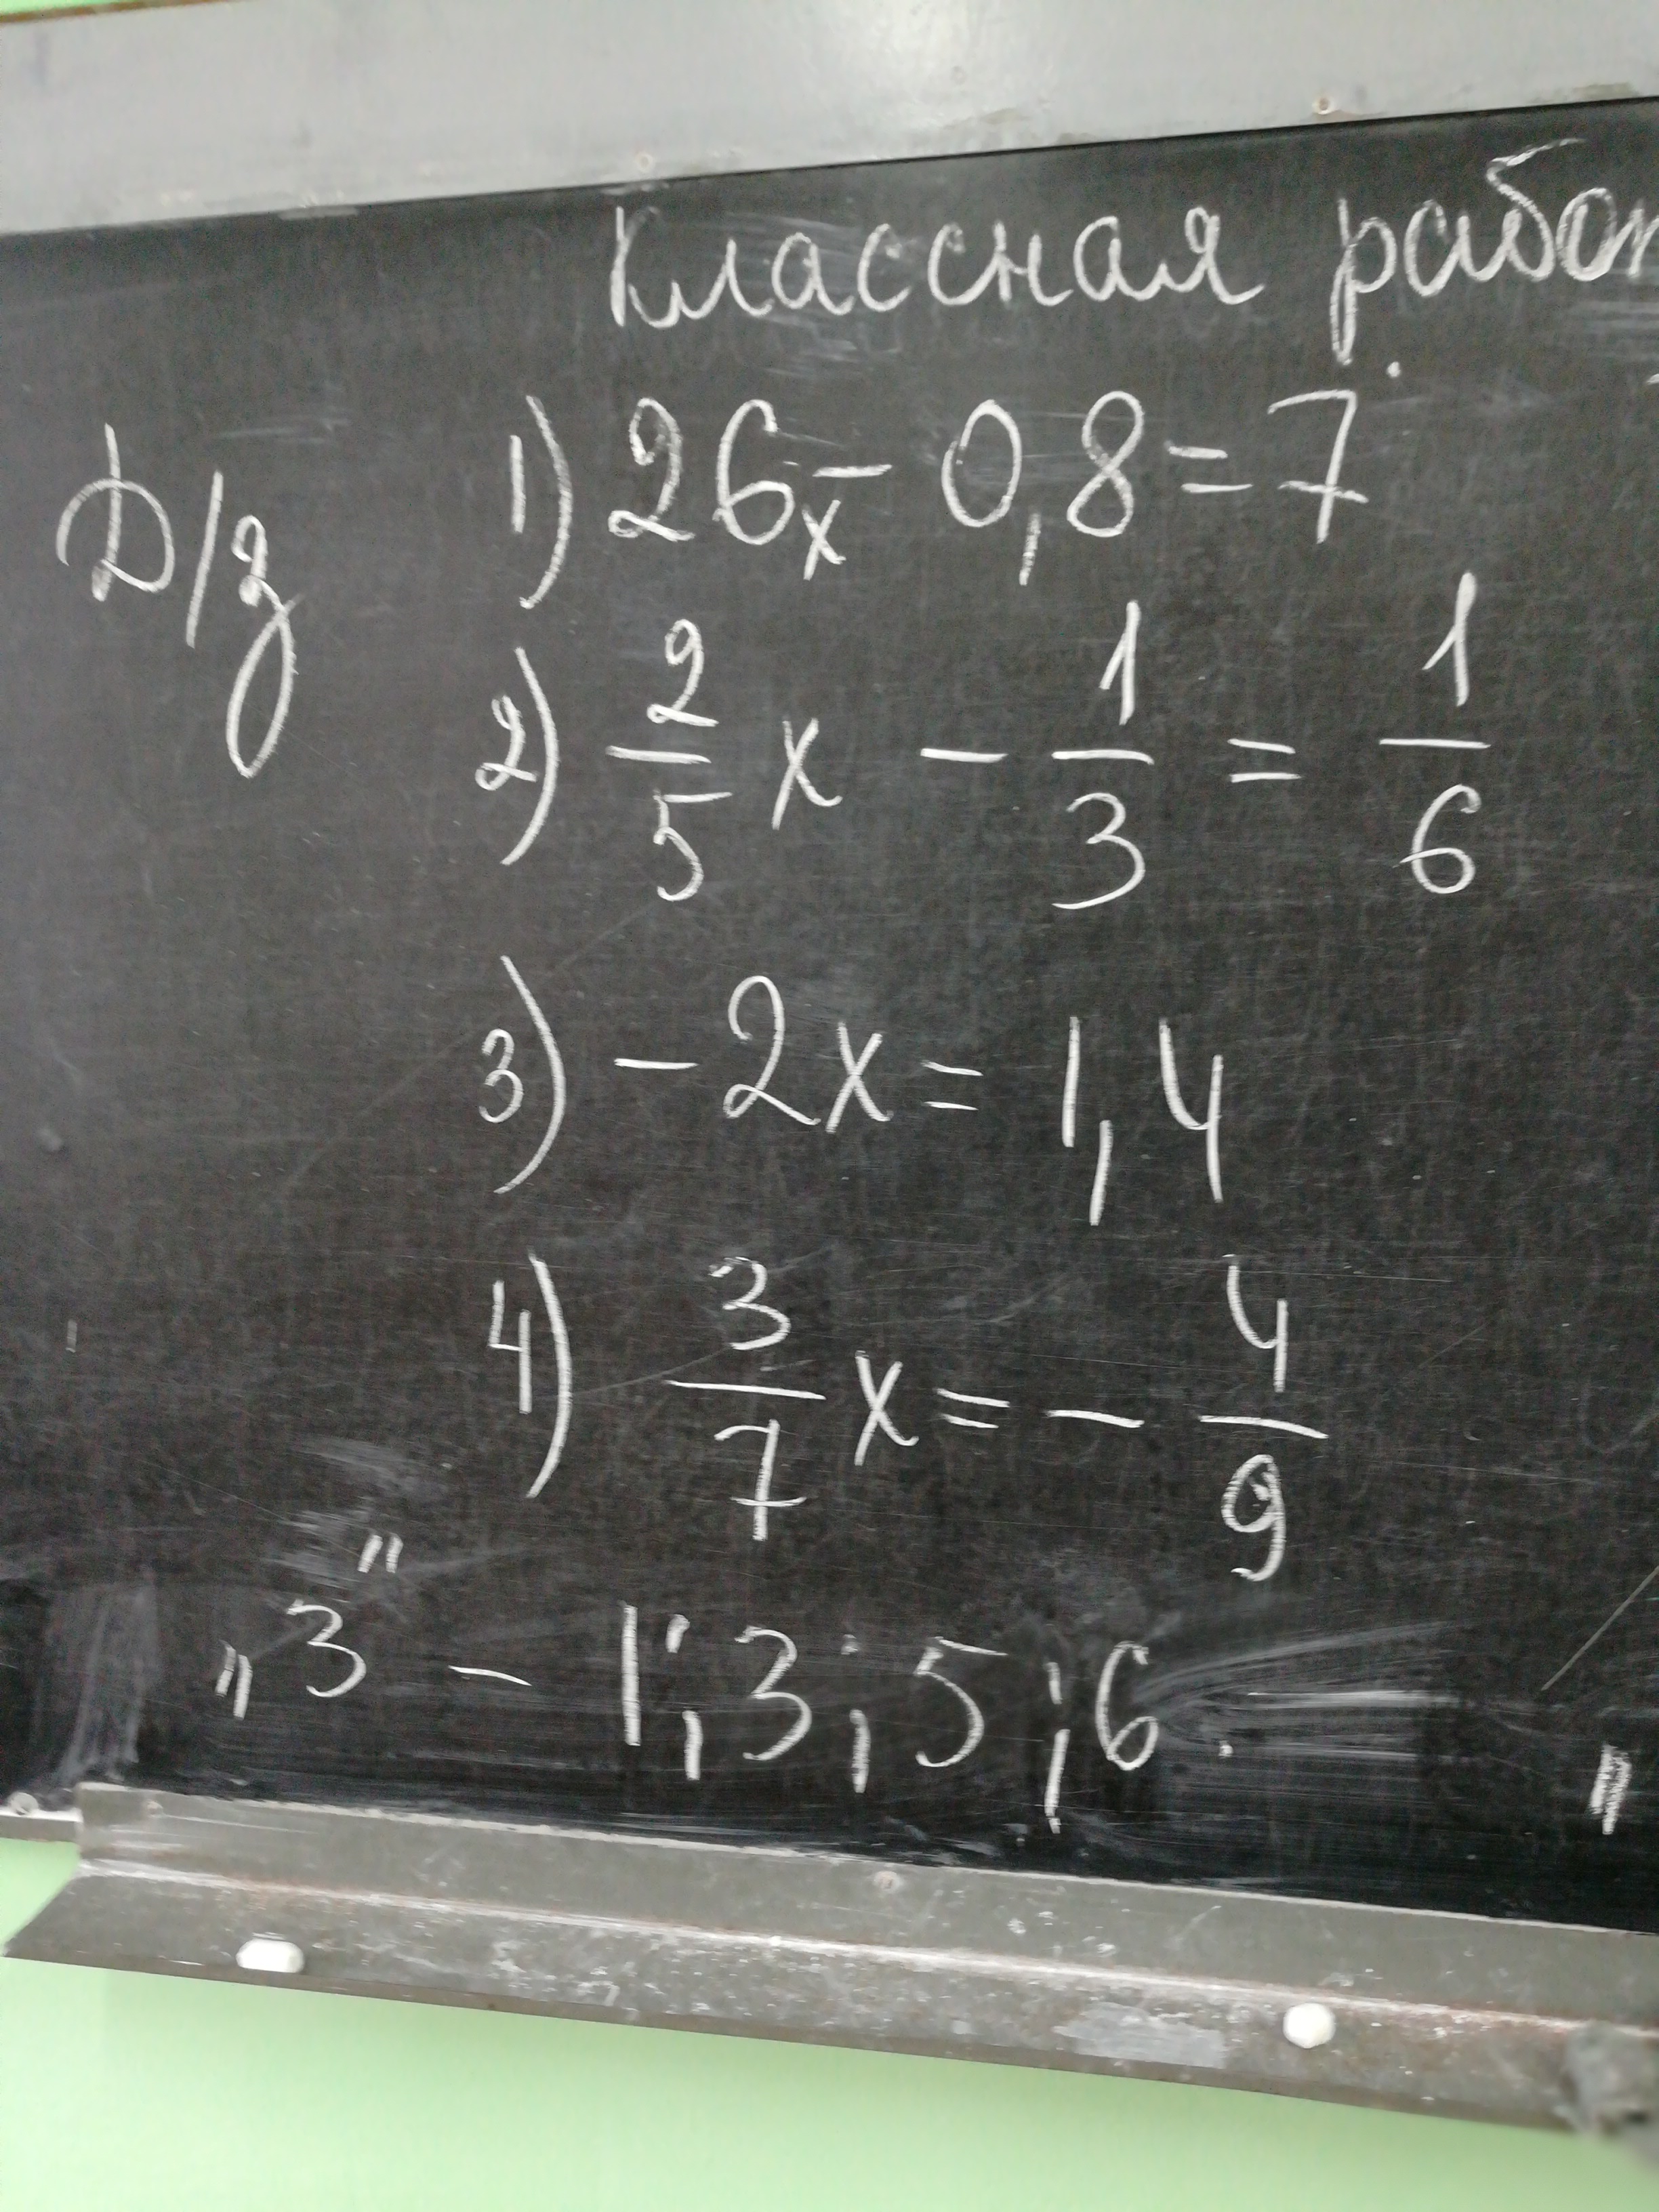 Классная рабо
Д/з
1) 26x - 0,8 = 7
2) 2/5 x - 1/3 = 1/6
3) - 2x = 1,4
4) 3/7 x = - 4/9
„3" - 1; 3; 5; 6.
„